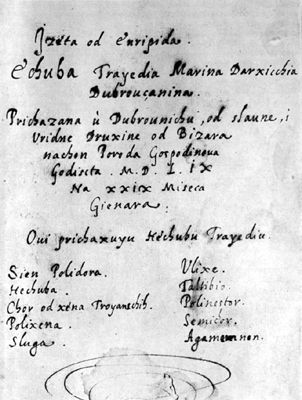 Izeta od Euripida.
Echuba Trayedia Marina Darxicchia
Dubrouçanina.
Prichazana ù Dubrounichu, od slaune, i
Vridne Druxine od Bizara
nachon Poroda Gospodinova
Godiscta. M. D. L. IX
Na XXIX Miseca
Gienara.
Oui prichaxuyu Hechubu Trayediu.
Sien Polidora.
Hechuba.
Chor od xena Troyanschih.
Polixena.
Sluga.
Vlixe.
Taltibio.
Polinestor.
Semicor.
Agamemnon.